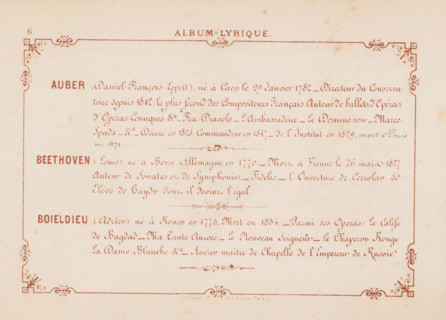 6
ALBUM-LYRIQUE.
AUBER (Daniel François-Esprit) né à Caen le 29 Janvier 1782 _ Directeur du Conserva
toire depuis 1842. le plus fécond des Compositeurs Français Auteur de ballets d'Opéras
d'Opéras Comiques &ª _ Fra-Diavolo _ L'Ambassadrice _ Le Domino noir _ Marco
Spada _ &ª Décoré en 1825 Commandeur en 1847 _ de l'Institut en 1829, mort à Paris
en 1871.
BEETHOVEN (Louis) né à Bonn Allemagne en 1770 _ Mort à Vienne le 26 mars 1827
Auteur de Sonates et de Symphonies _ Fidelio _ l'Ouverture de Coriolan &c
Elève de Haydn dont il devint l'égal.
BOIELDIEU (Adrien) né à Rouen en 1775, Mort en 1834 _ Parmi ses Opéras: le Calife
de Bagdad _ Ma Tante Aurore _ le Nouveau Seigneur _ le Chaperon Rouge
La Dame Blanche &ª _ Ancien maître de Chapelle de l'Empereur de Russie